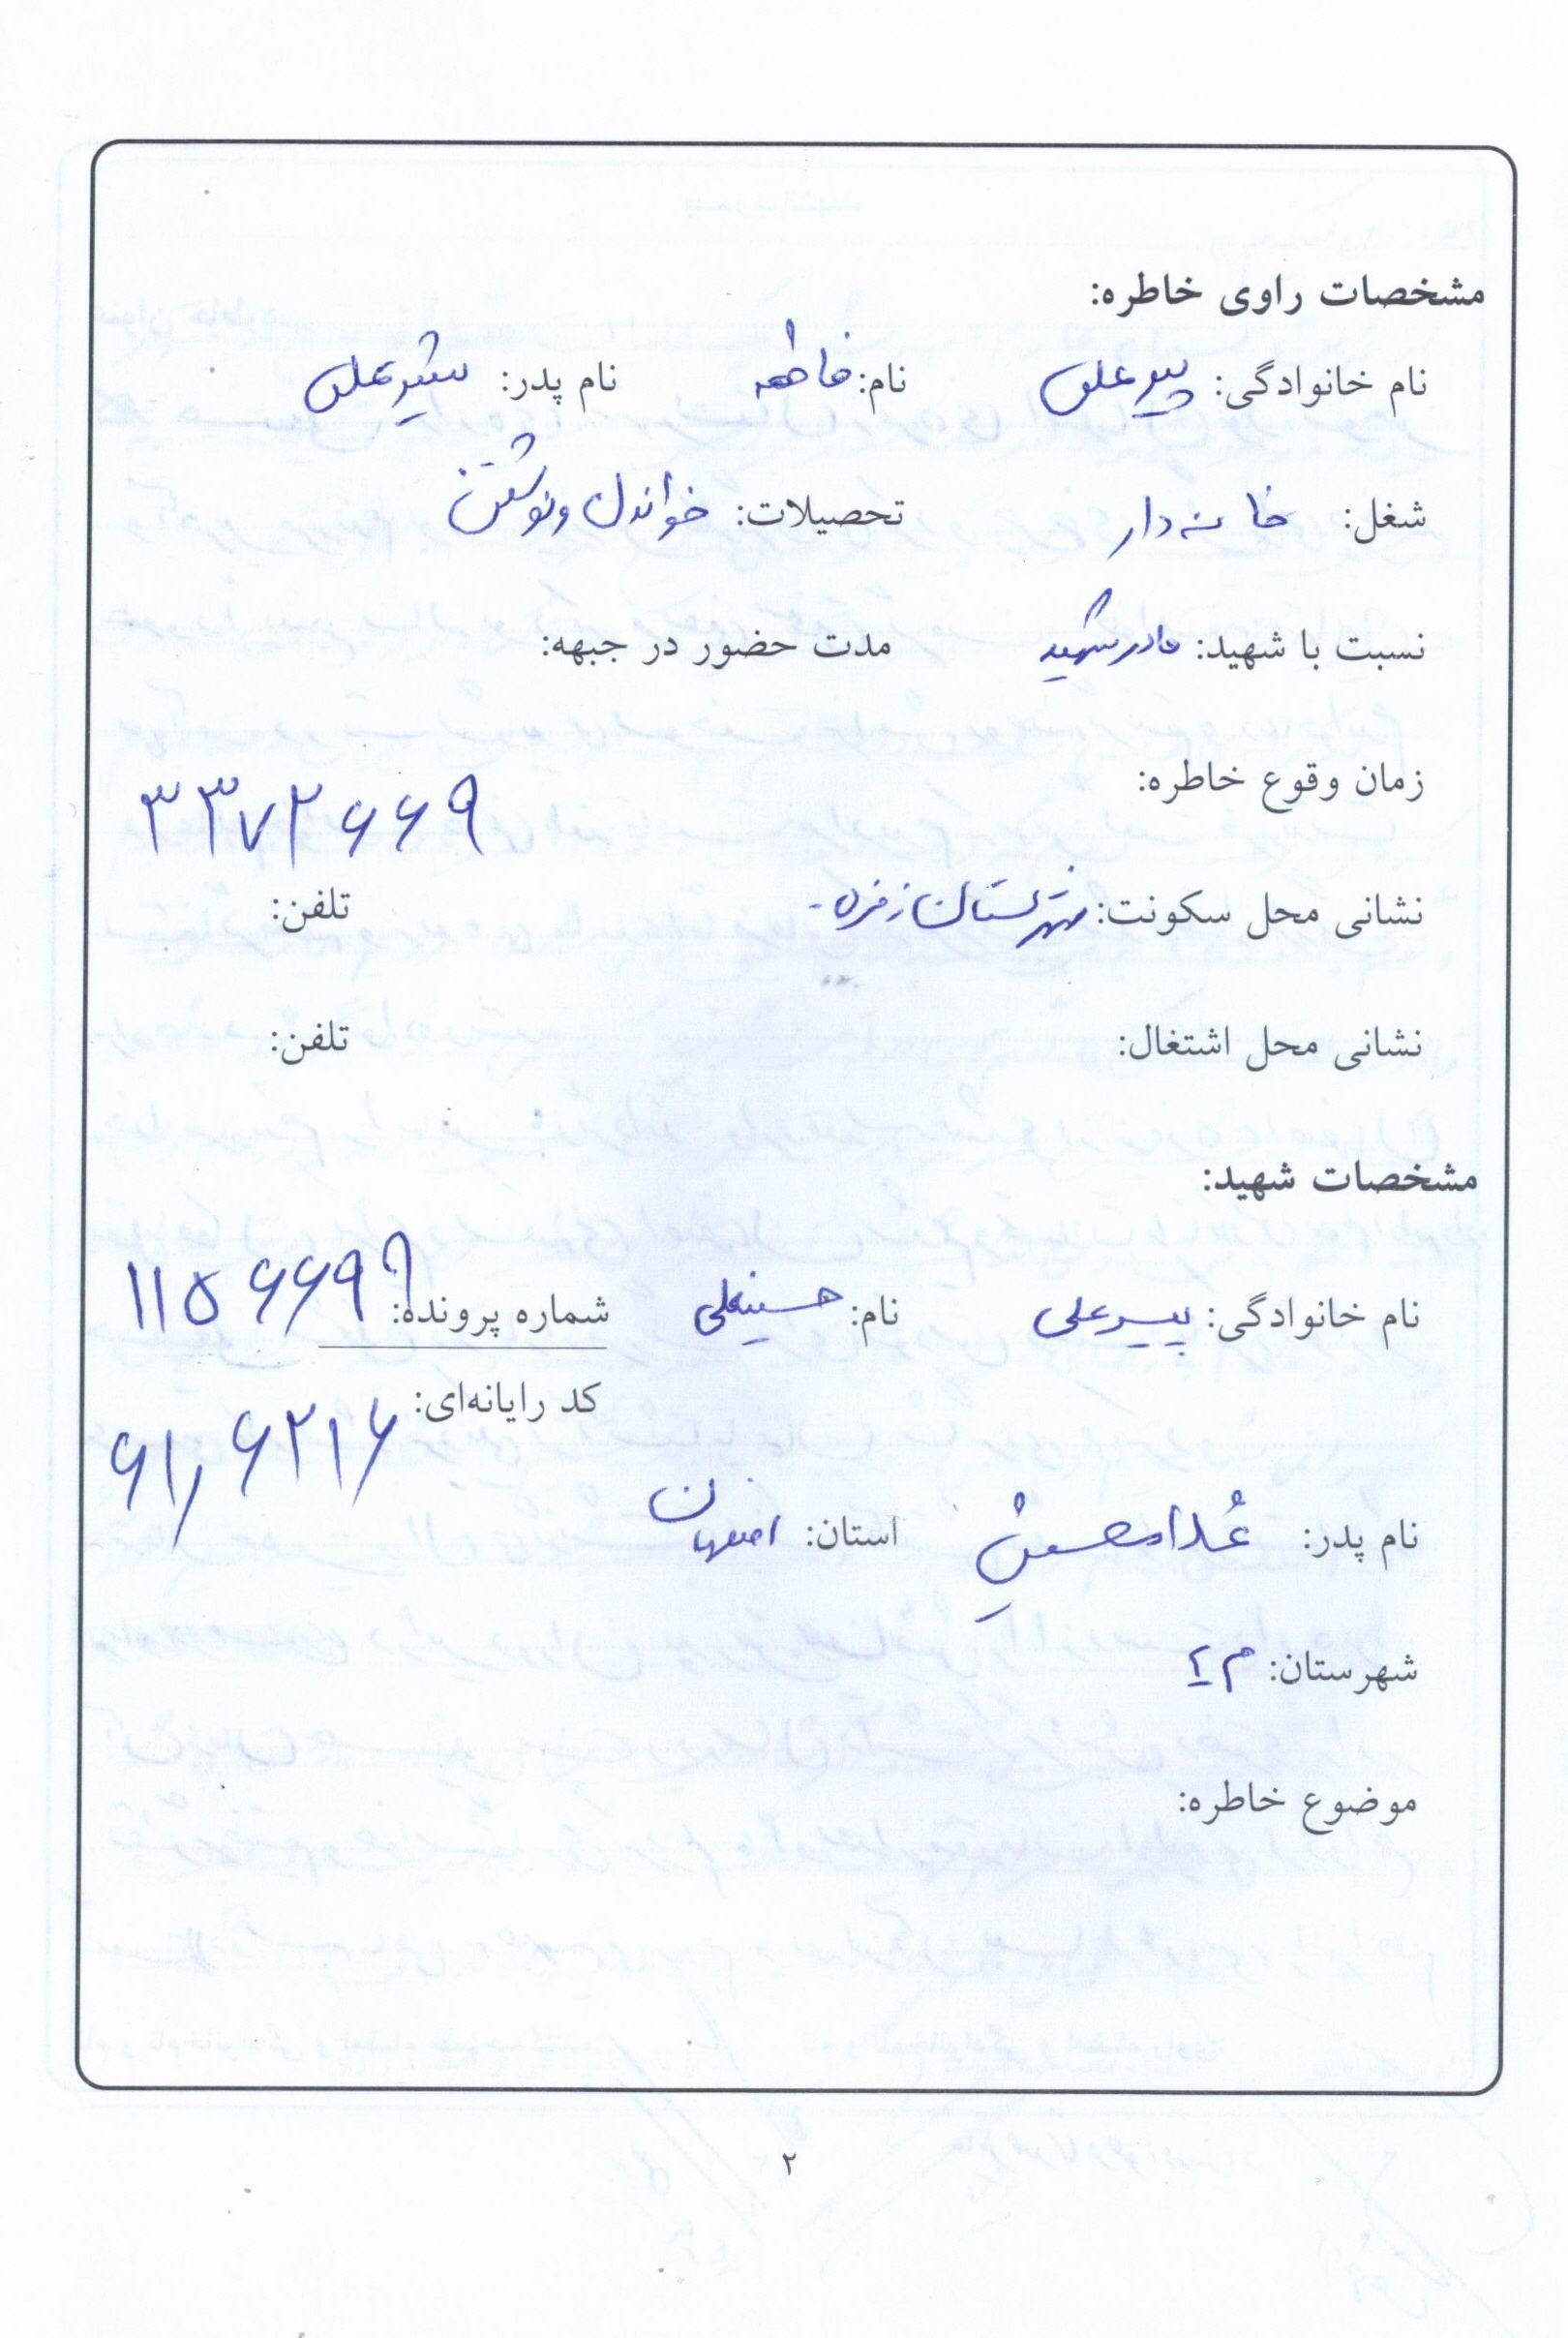 مشخصات راوی خاطره:
نام خانوادگی: پیرعلی نام: فاطمه نام پدر: شیرعلی
شغل: خانه دار تحصیلات: خواندن و نوشتن
نسبت با شهید: مادر شهید مدت حضور در جبهه:
زمان وقوع خاطره:
۳۳۷۲۶۶۹
نشانی محل سکونت: شهرستان زفره - تلفن:
نشانی محل اشتغال: تلفن:
مشخصات شهید:
نام خانوادگی: پیرعلی نام: حسینعلی شماره پرونده: ۱۱۵۶۶۹۹
کد رایانه‌ای: ۶۱۰۶۲۱۶
نام پدر: غلامحسین استان: اصفهان
شهرستان: م ۲
موضوع خاطره:
۲